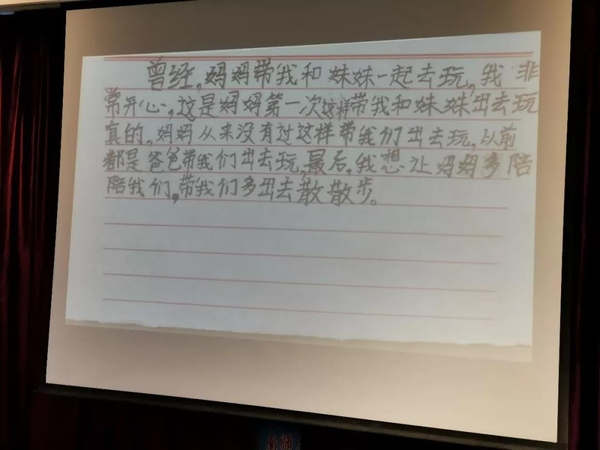 曾经,妈妈带我和妹妹一起去玩,我非
常开心,这是妈妈第一次这样带我和妹妹出去玩
真的,妈妈从来没有过这样带我们出去玩,以前
都是爸爸带我们出去玩,最后,我想让妈妈多陪
陪我们,带我们多出去散散步。